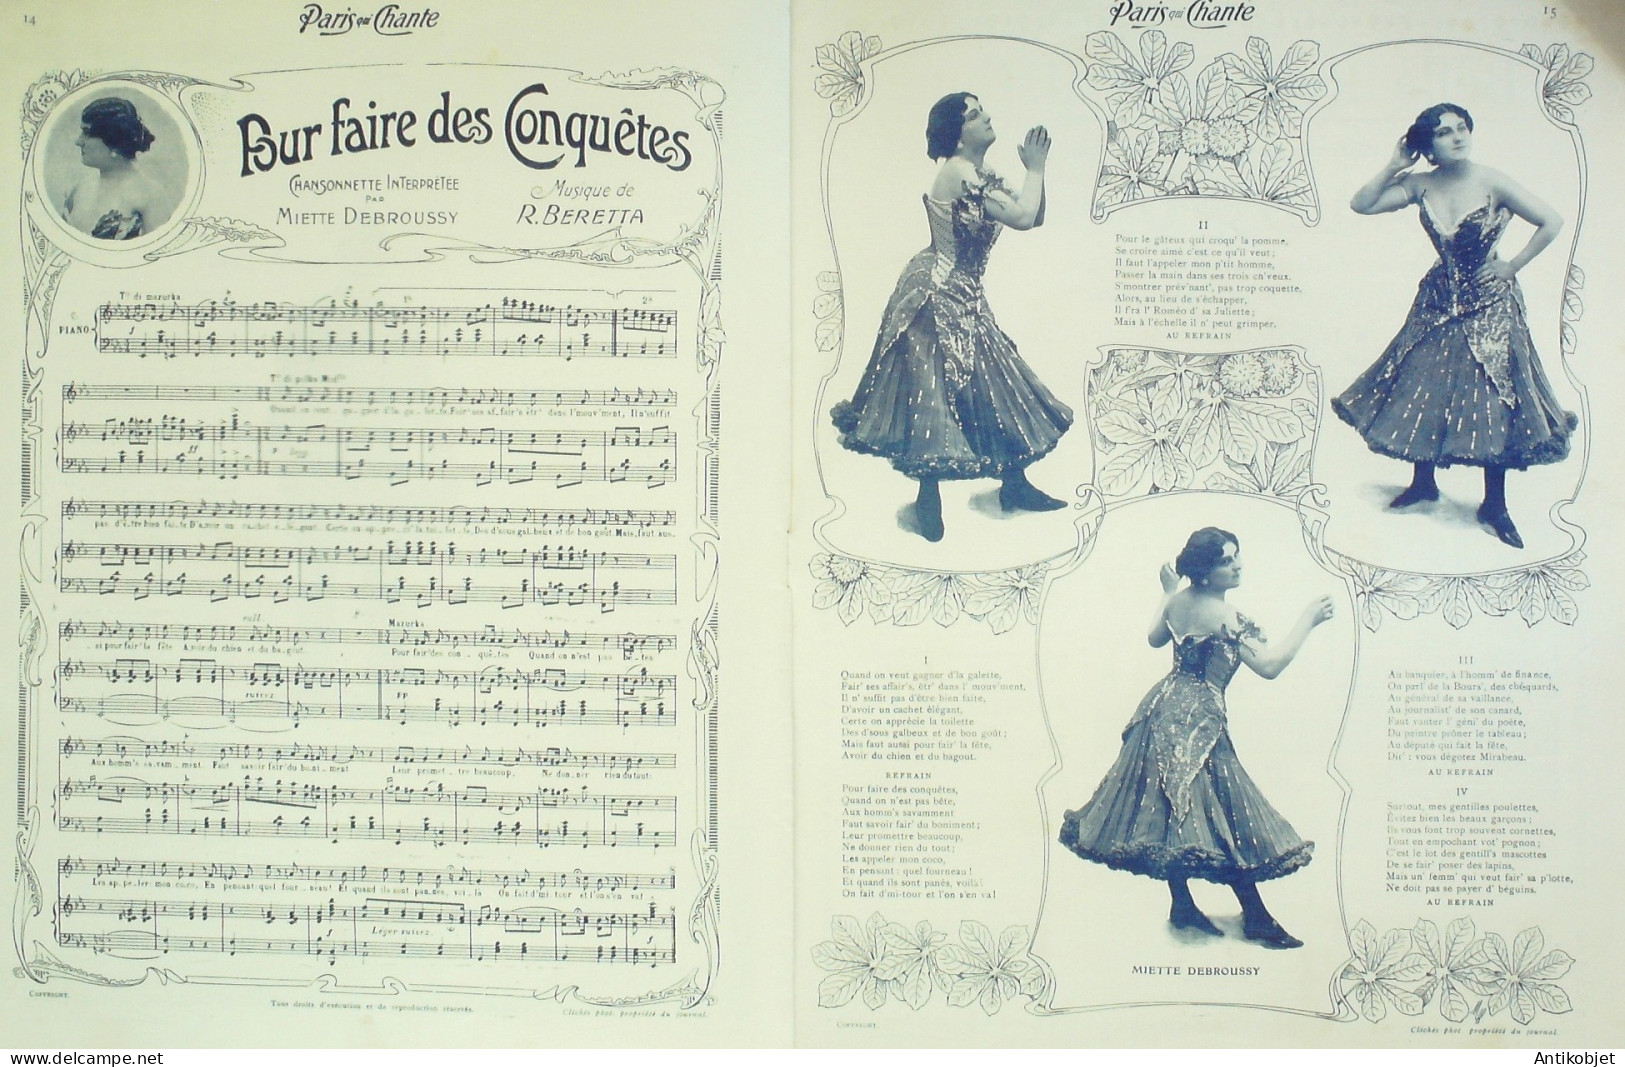 14
Paris qui Chante
Pour faire des Conquêtes
CHANSONNETTE INTERPRÉTÉE
PAR
MIETTE DEBROUSSY
Musique de
R. BERETTA
T° di mazurka
1ª
2ª
PIANO
f
T° di polka Mod
Quand on veut ga_gner d'la ga_let_te, Fair' ses af_fair's êtr' dans l'mouv'ment, Il n'suffit
ff
p
pas d'être bien fai_te D'a_voir un cachet é_lé_gant. Certe on ap_pré_ci' la toi_let_te, Des d'sous gal_beux et de bon goût. Mais, faut aus_
rall.
Mazurka
si pour fair' la fête A_voir du chien et du ba_gout. Pour fair' des con_quê_tes Quand on n'est pas bê_tes
suivez
pp
Aux homm's sa_vam_ment Faut savoir fair' du boni_ment Leur promet_tre beaucoup, Ne don_ner rien du tout:
Les ap_pe_ler: mon co_co, En pensant: quel four_neau! Et quand ils sont pan_nés, voi_là On fait d'mi tour et l'on s'en va!
Léger suivez
f
f
COPYRIGHT.
Tous droits d'exécution et de reproduction réservés.
Clichés phot. propriété du journal.
Paris qui Chante
15
II
Pour le gâteux qui croqu' la pomme,
Se croire aimé c'est ce qu'il veut;
Il faut l'appeler mon p'tit homme,
Passer la main dans ses trois ch'veux.
S'montrer prév'nant', pas trop coquette,
Alors, au lieu de s'échapper,
Il f'ra l' Roméo d' sa Juliette;
Mais à l'échelle il n' peut grimper.
AU REFRAIN
I
Quand on veut gagner d'la galette,
Fair' ses affair's, êtr' dans l' mouv'ment,
Il n' suffit pas d'être bien faite,
D'avoir un cachet élégant,
Certe on apprécie la toilette
Des d'sous galbeux et de bon goût;
Mais faut aussi pour fair' la fête,
Avoir du chien et du bagout.
REFRAIN
Pour faire des conquêtes,
Quand on n'est pas bête,
Aux homm's savamment
Faut savoir fair' du boniment;
Leur promettre beaucoup,
Ne donner rien du tout;
Les appeler mon coco,
En pensant: quel fourneau!
Et quand ils sont panés, voilà!
On fait d'mi-tour et l'on s'en va!
III
Au banquier, à l'homm' de finance,
On parl' de la Bours', des chéquards,
Au général de sa vaillance,
Au journalist' de son canard,
Faut vanter l' géni' du poète,
Du peintre prôner le tableau;
Au député qui fait la fête,
Dir' : vous dégotez Mirabeau.
AU REFRAIN
IV
Surtout, mes gentilles poulettes,
Évitez bien les beaux garçons;
Ils vous font trop souvent cornettes,
Tout en empochant vot' pognon;
C'est le lot des gentill's mascottes
De se fair' poser des lapins,
Mais un' femm' qui veut fair' sa p'lotte,
Ne doit pas se payer d' béguins.
AU REFRAIN
MIETTE DEBROUSSY
COPYRIGHT.
Clichés phot. propriété du journal.
www.delcampe.net
Antikobjet